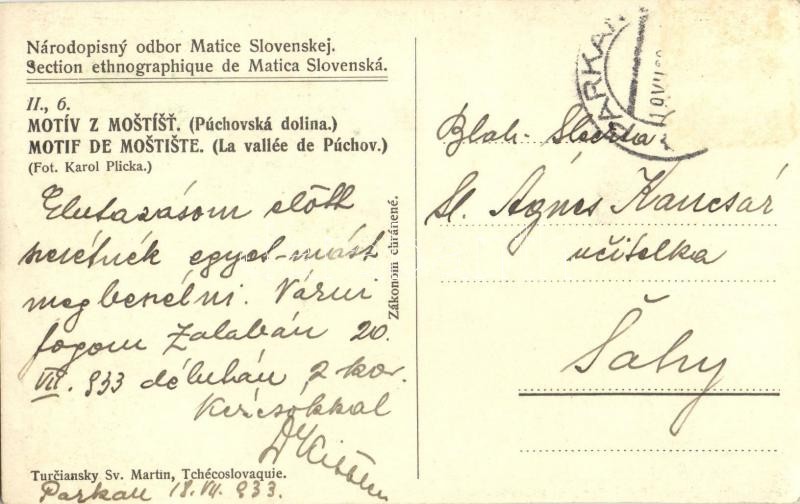 Národopisný odbor Matice Slovenskej.
Section ethnographique de Matica Slovenská.
II., 6.
MOTÍV Z MOŠTÍŠŤ. (Púchovská dolina.)
MOTIF DE MOŠTIŠTE. (La vallée de Púchov.)
(Fot. Karol Plicka.)
Elutazásom előtt
szeretnék egyet-mást
megbeszélni. Várni
fogom Zalabán 20.
VII. 933 délután 2 kor.
Kézcsókkal
Turčiansky Sv. Martin, Tchécoslovaquie.
Parkan 18.VII.933.
Zákonom chránené.
PARKAN
Blah. Slečna
Sl. Ágnes Kancsár
učitelka
Šahy